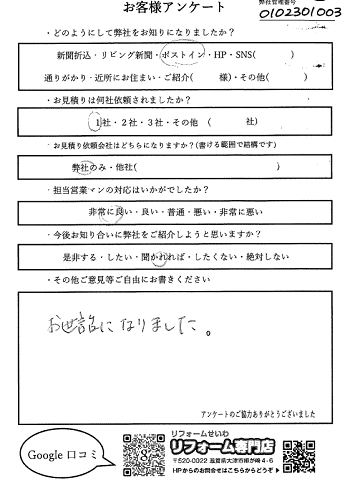 お客様アンケート
弊社管理番号
0102301003
・どのようにして弊社をお知りになりましたか？
新聞折込・リビング新聞・ポストイン・HP・SNS(　　　)
通りがかり・近所にお住まい・ご紹介(　　　様)・その他(　　　)
・お見積りは何社依頼されましたか？
1社・2社・3社・その他　(　　　社)
・お見積り依頼会社はどちらになりますか？(書ける範囲で結構です)
弊社のみ・他社(　　　)
・担当営業マンの対応はいかがでしたか？
非常に良い・良い・普通・悪い・非常に悪い
・今後お知り合いに弊社をご紹介しようと思いますか？
是非する・したい・聞かれれば・したくない・絶対しない
・その他ご意見等ご自由にお書きください
お世話になりました。
アンケートのご協力ありがとうございました
Google 口コミ
リフォームせいわ
リフォーム専門店
〒520-0022 滋賀県大津市柳が崎4-6
HPからのお問合せはこちらからどうぞ